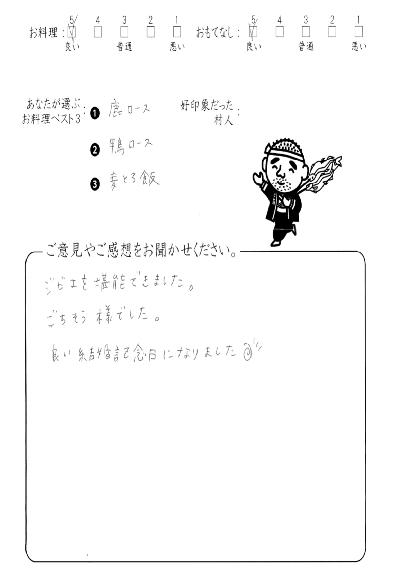 5 4 3 2 1
お料理: ☑ □ □ □ □
良い 普通 悪い
5 4 3 2 1
おもてなし: ☑ □ □ □ □
良い 普通 悪い
あなたが選ぶ
お料理ベスト3:
❶ 鹿ロース
❷ 鴨ロース
❸ 麦とろ飯
好印象だった
村人:
ご意見やご感想をお聞かせください。
ジビエを堪能できました。
ごちそう様でした。
良い結婚記念日になりました